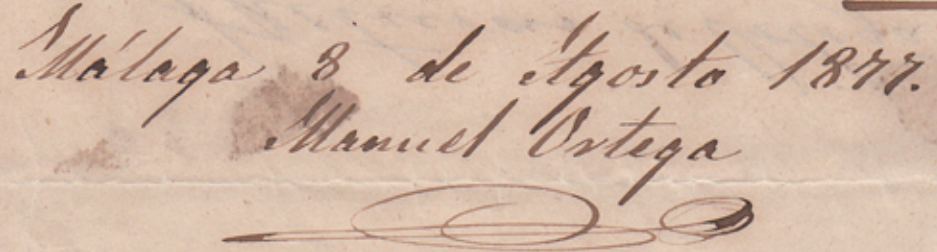 Málaga 8 de Agosto 1877.
Manuel Ortega